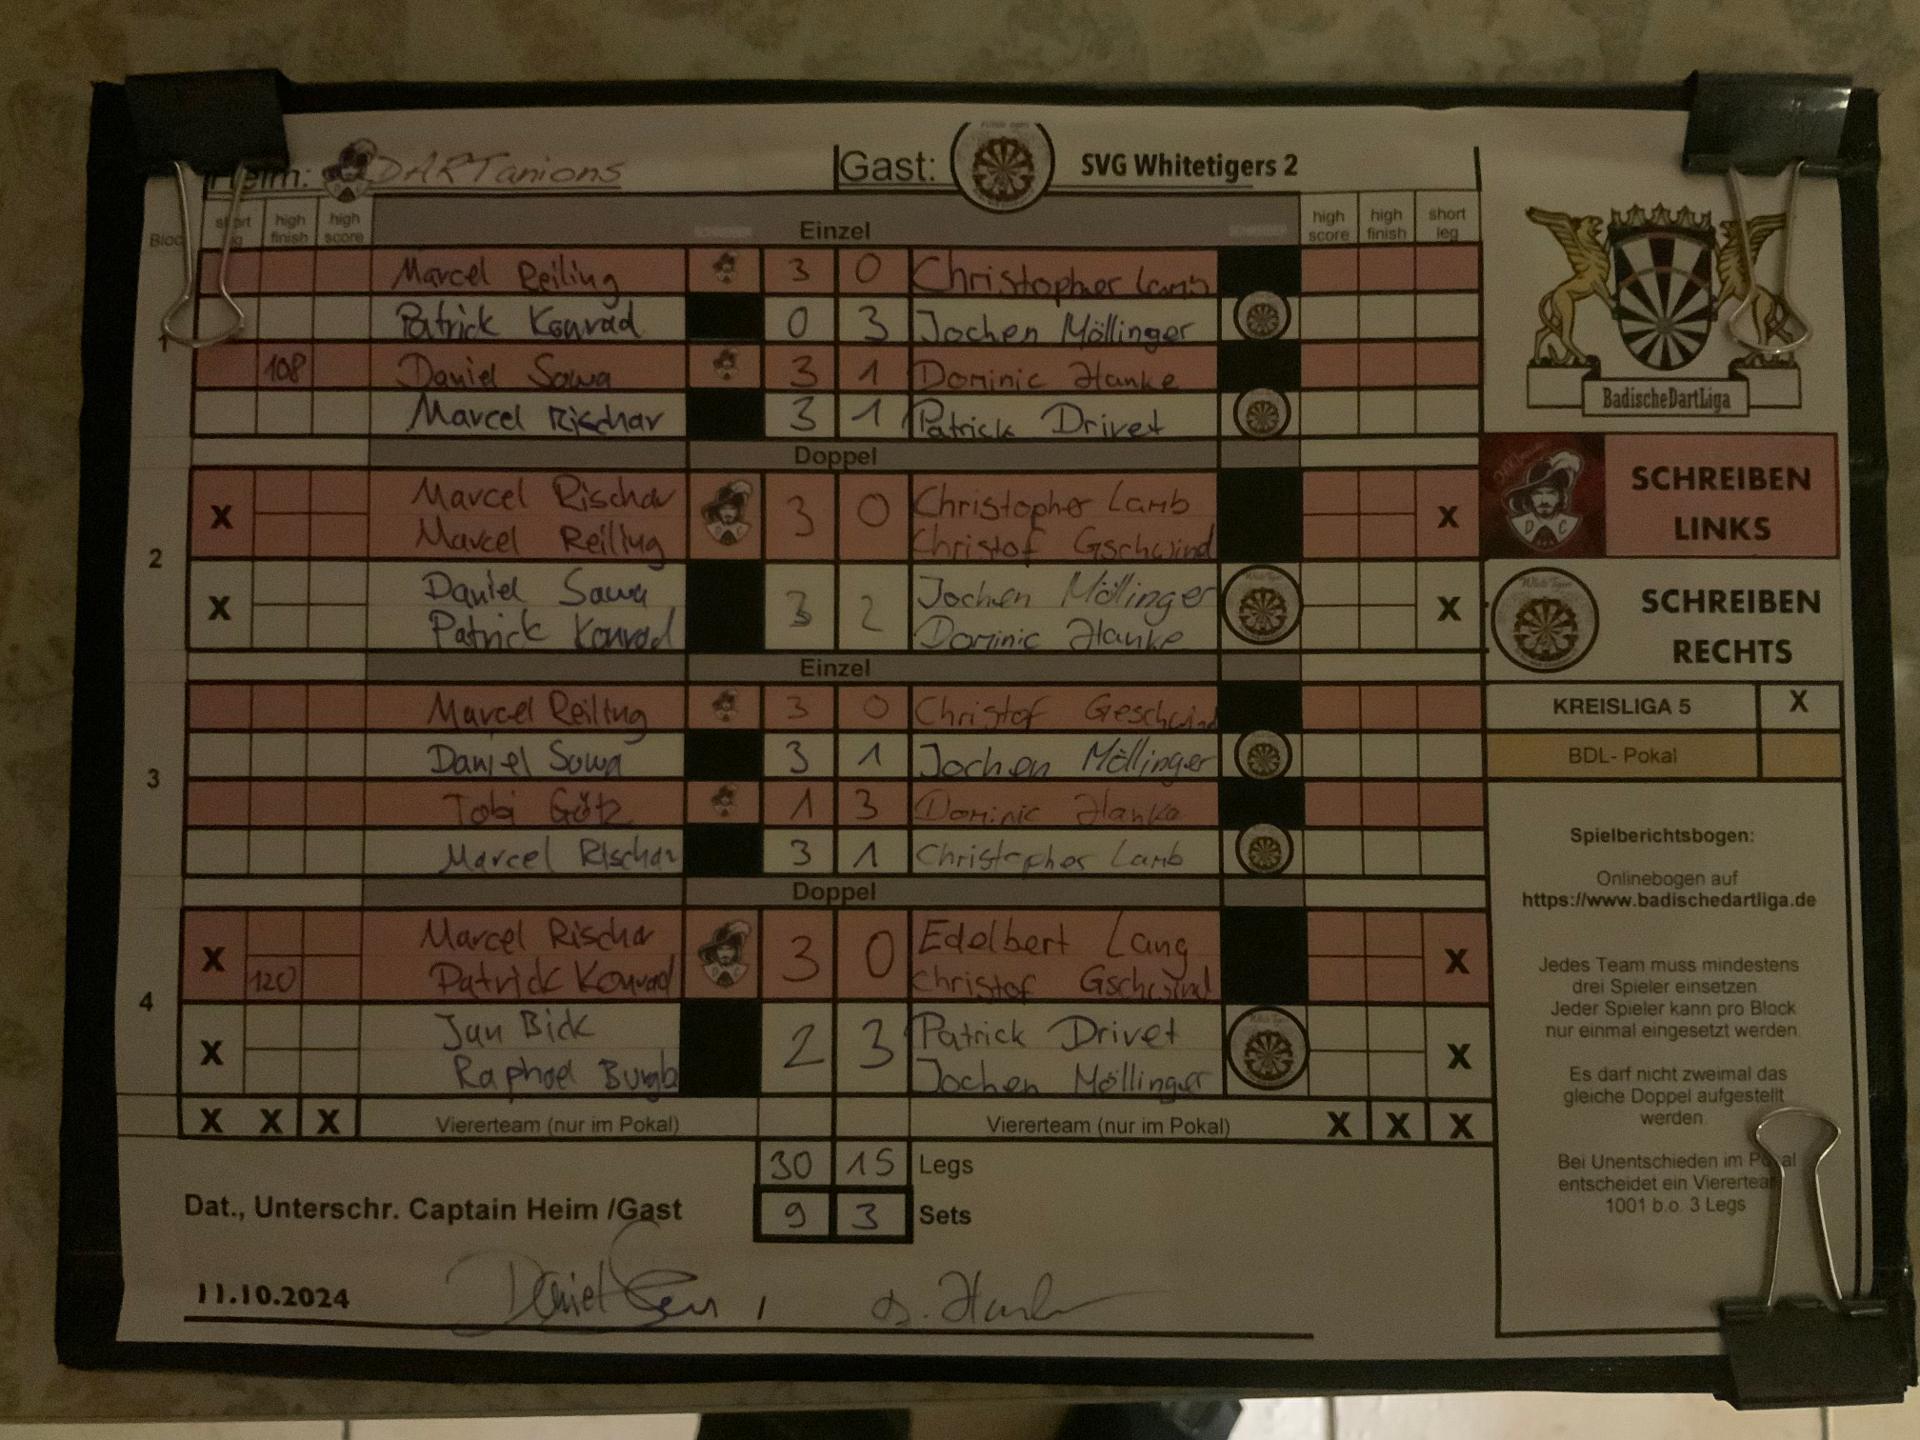 Heim: DARTanions Gast: SVG Whitetigers 2
Block short leg high finish high score Einzel high score high finish short leg
Marcel Reiling 3 0 Christopher Lamb
Patrick Konrad 0 3 Jochen Möllinger
1
108 Daniel Sawa 3 1 Dominic Hanke
Marcel Rischar 3 1 Patrick Drivet
BadischeDartLiga
Doppel
2
X Marcel Rischar 3 0 Christopher Lamb X
Marcel Reiling Christof Gschwind
X Daniel Sawa 3 2 Jochen Möllinger X
Patrick Konrad Dominic Hanke
SCHREIBEN
LINKS
SCHREIBEN
RECHTS
Einzel
3
Marcel Reiling 3 0 Christof Geschwind
Daniel Sawa 3 1 Jochen Möllinger
Tobi Götz 1 3 Dominic Hanke
Marcel Rischar 3 1 Christopher Lamb
KREISLIGA 5 X
BDL- Pokal
Doppel
4
X Marcel Rischar 3 0 Edelbert Lang X
120 Patrick Konrad Christof Gschwind
X Jan Bick 2 3 Patrick Drivet X
Raphael Jochen Möllinger
X X X Viererteam (nur im Pokal) Viererteam (nur im Pokal) X X X
30 15 Legs
Dat., Unterschr. Captain Heim /Gast 9 3 Sets
11.10.2024 Daniel / D. Hanke
Spielberichtsbogen:
Onlinebogen auf
https://www.badischedartliga.de
Jedes Team muss mindestens
drei Spieler einsetzen.
Jeder Spieler kann pro Block
nur einmal eingesetzt werden.
Es darf nicht zweimal das
gleiche Doppel aufgestellt
werden.
Bei Unentschieden im Pokal
entscheidet ein Viererteam
1001 b.o. 3 Legs